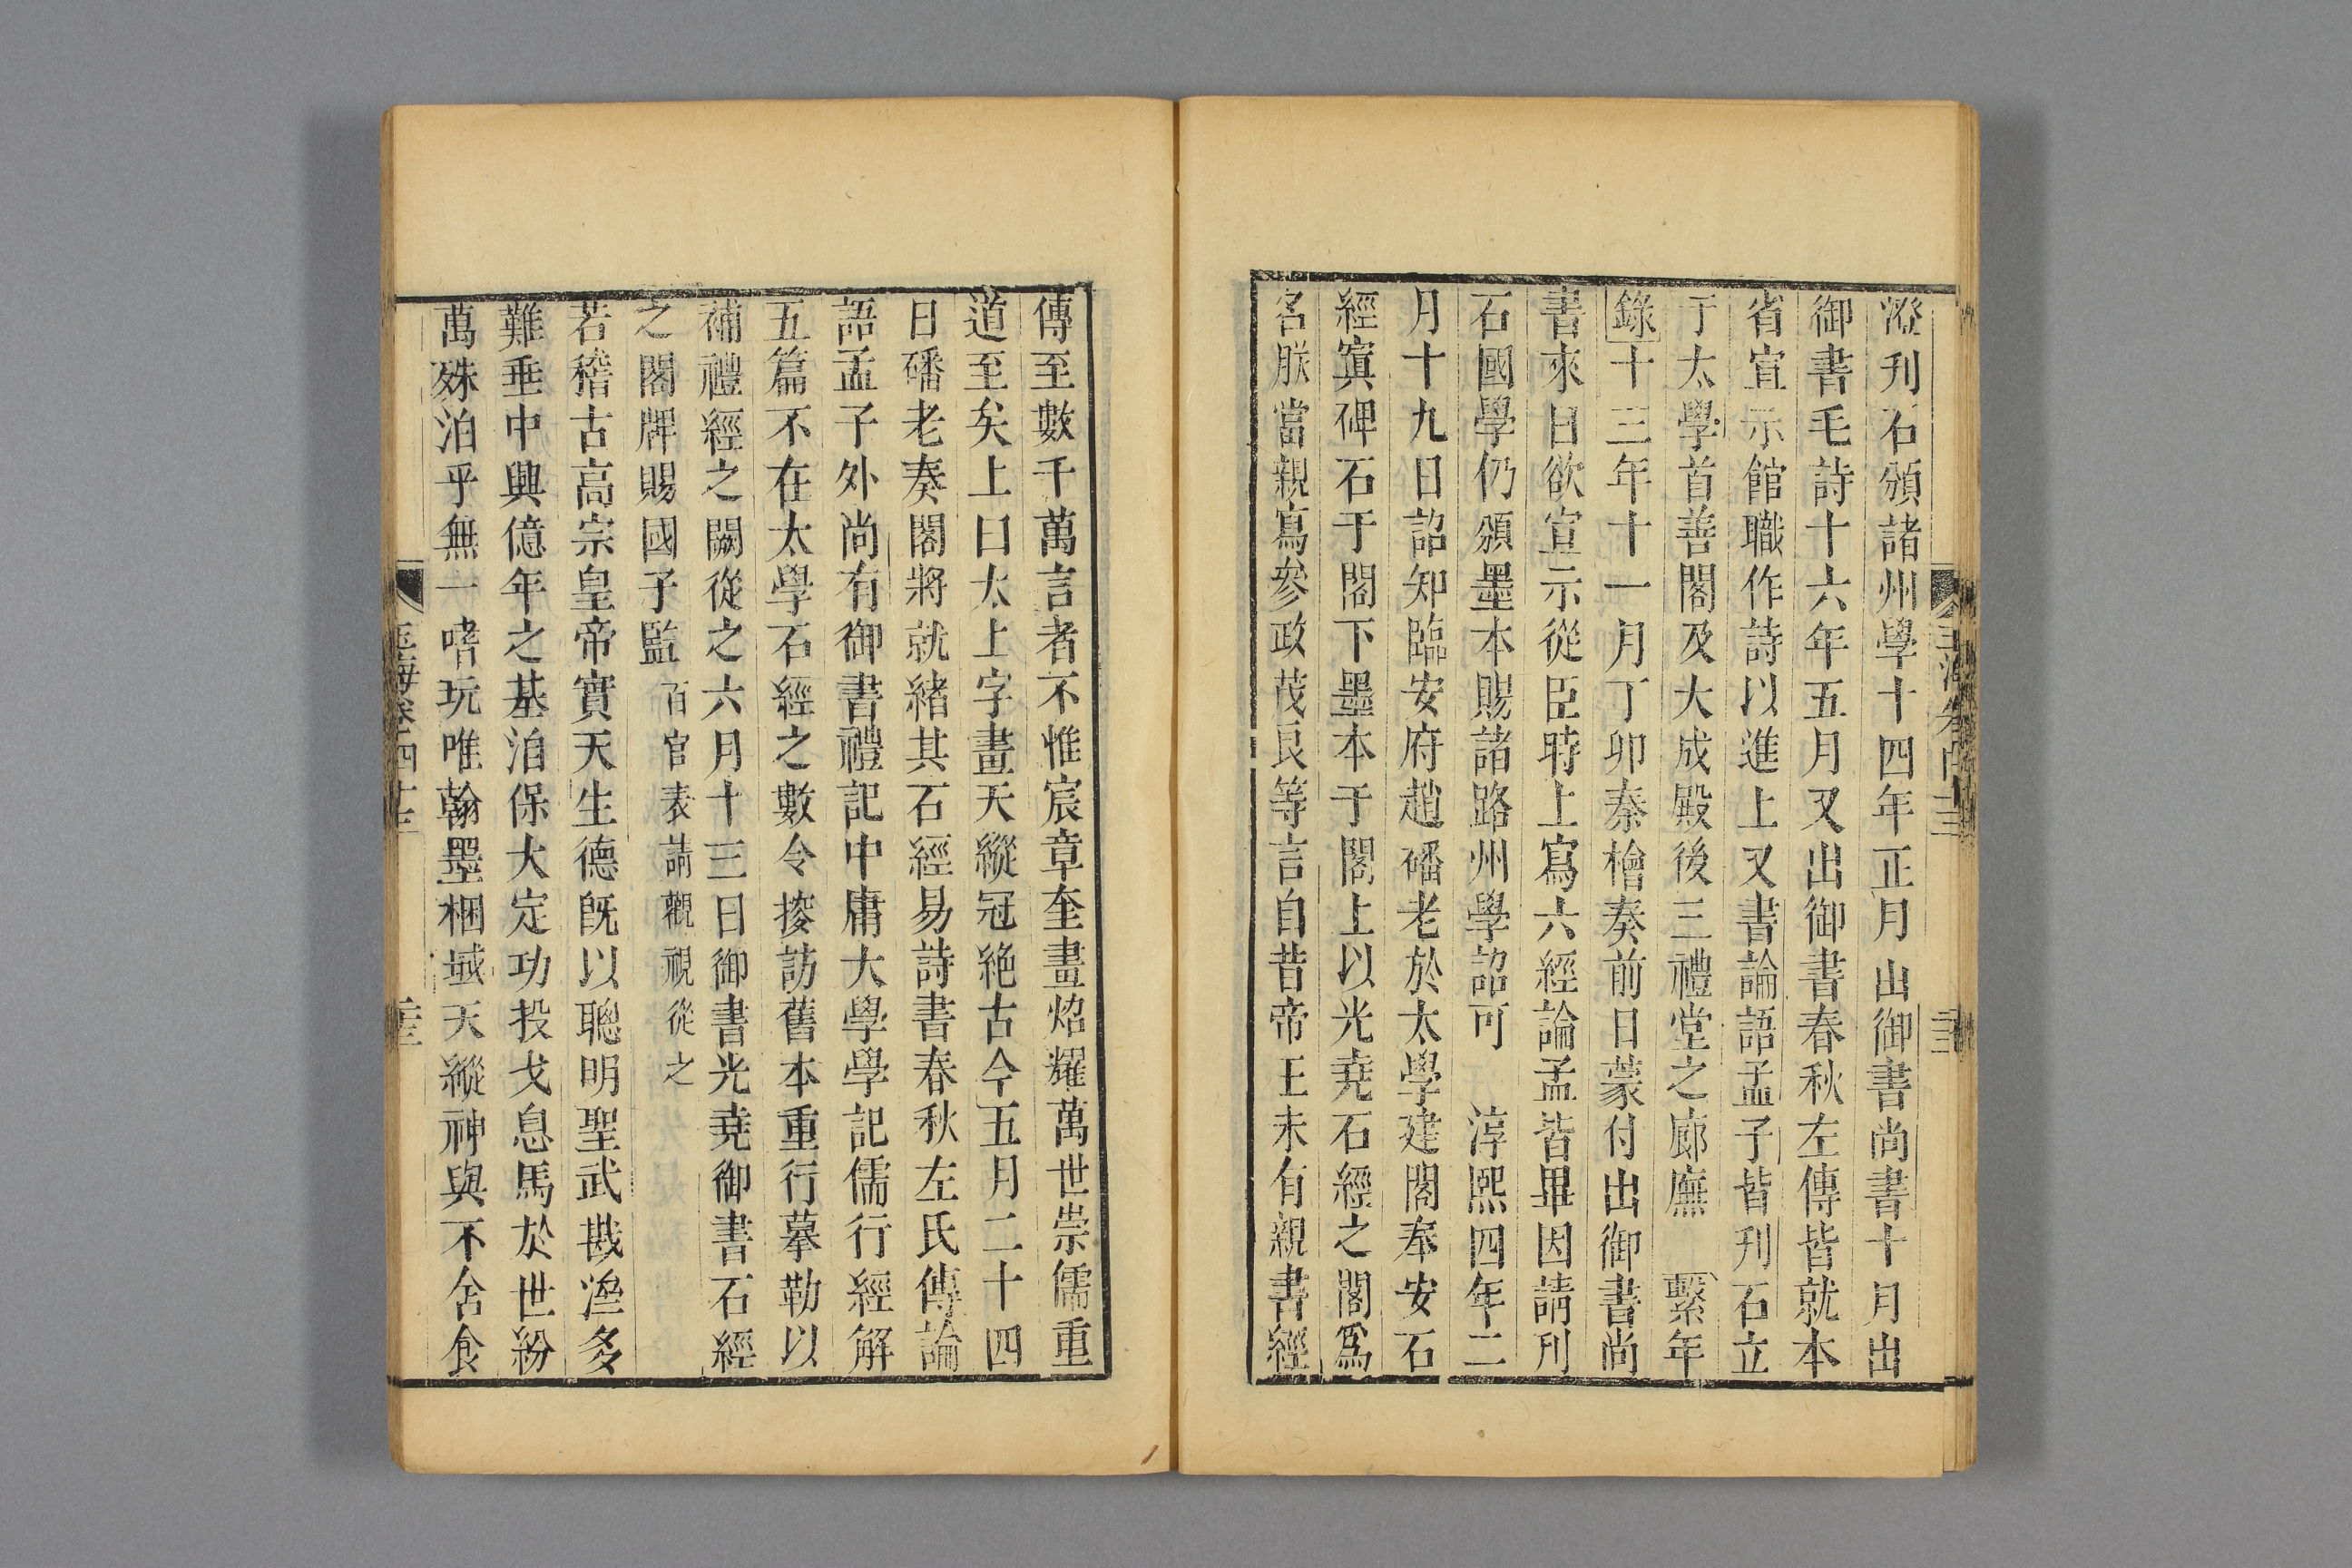 澄刊石頒諸州學十四年正月出御書尚書十月出
御書毛詩十六年五月又出御書春秋左傳皆就本
省宣示館職作詩以進上又書論語孟子皆刊石立
于太學首善閣及大成殿後三禮堂之廊廡 繫年
錄十三年十一月丁卯秦檜奏前日蒙付出御書尚
書來日欲宣示從臣時上寫六經論孟皆畢因請刊
石國學仍頒墨本賜諸路州學詔可 淳熙四年二
月十九日詔知臨安府趙磻老於太學建閣奉安石
經寘碑石于閣下墨本于閣上以光堯石經之閣爲
名朕當親寫參政茂良等言自昔帝王未有親書經
傳至數千萬言者不惟宸章奎畫炤耀萬世崇儒重
道至矣上曰太上字畫天縱冠絶古今五月二十四
日磻老奏閣將就緒其石經易詩書春秋左氏傳論
語孟子外尚有御書禮記中庸大學學記儒行經解
五篇不在太學石經之數令搜訪舊本重行摹勒以
補禮經之闕從之六月十三日御書光堯御書石經
之閣牌賜國子監百官表請觀視從之
若稽古高宗皇帝實天生德旣以聰明聖武戡濟多
難垂中興億年之基洎保大定功投戈息馬於世紛
萬殊泊乎無一嗜玩唯翰墨梱域天縱神與不舍食
玉海卷四十三